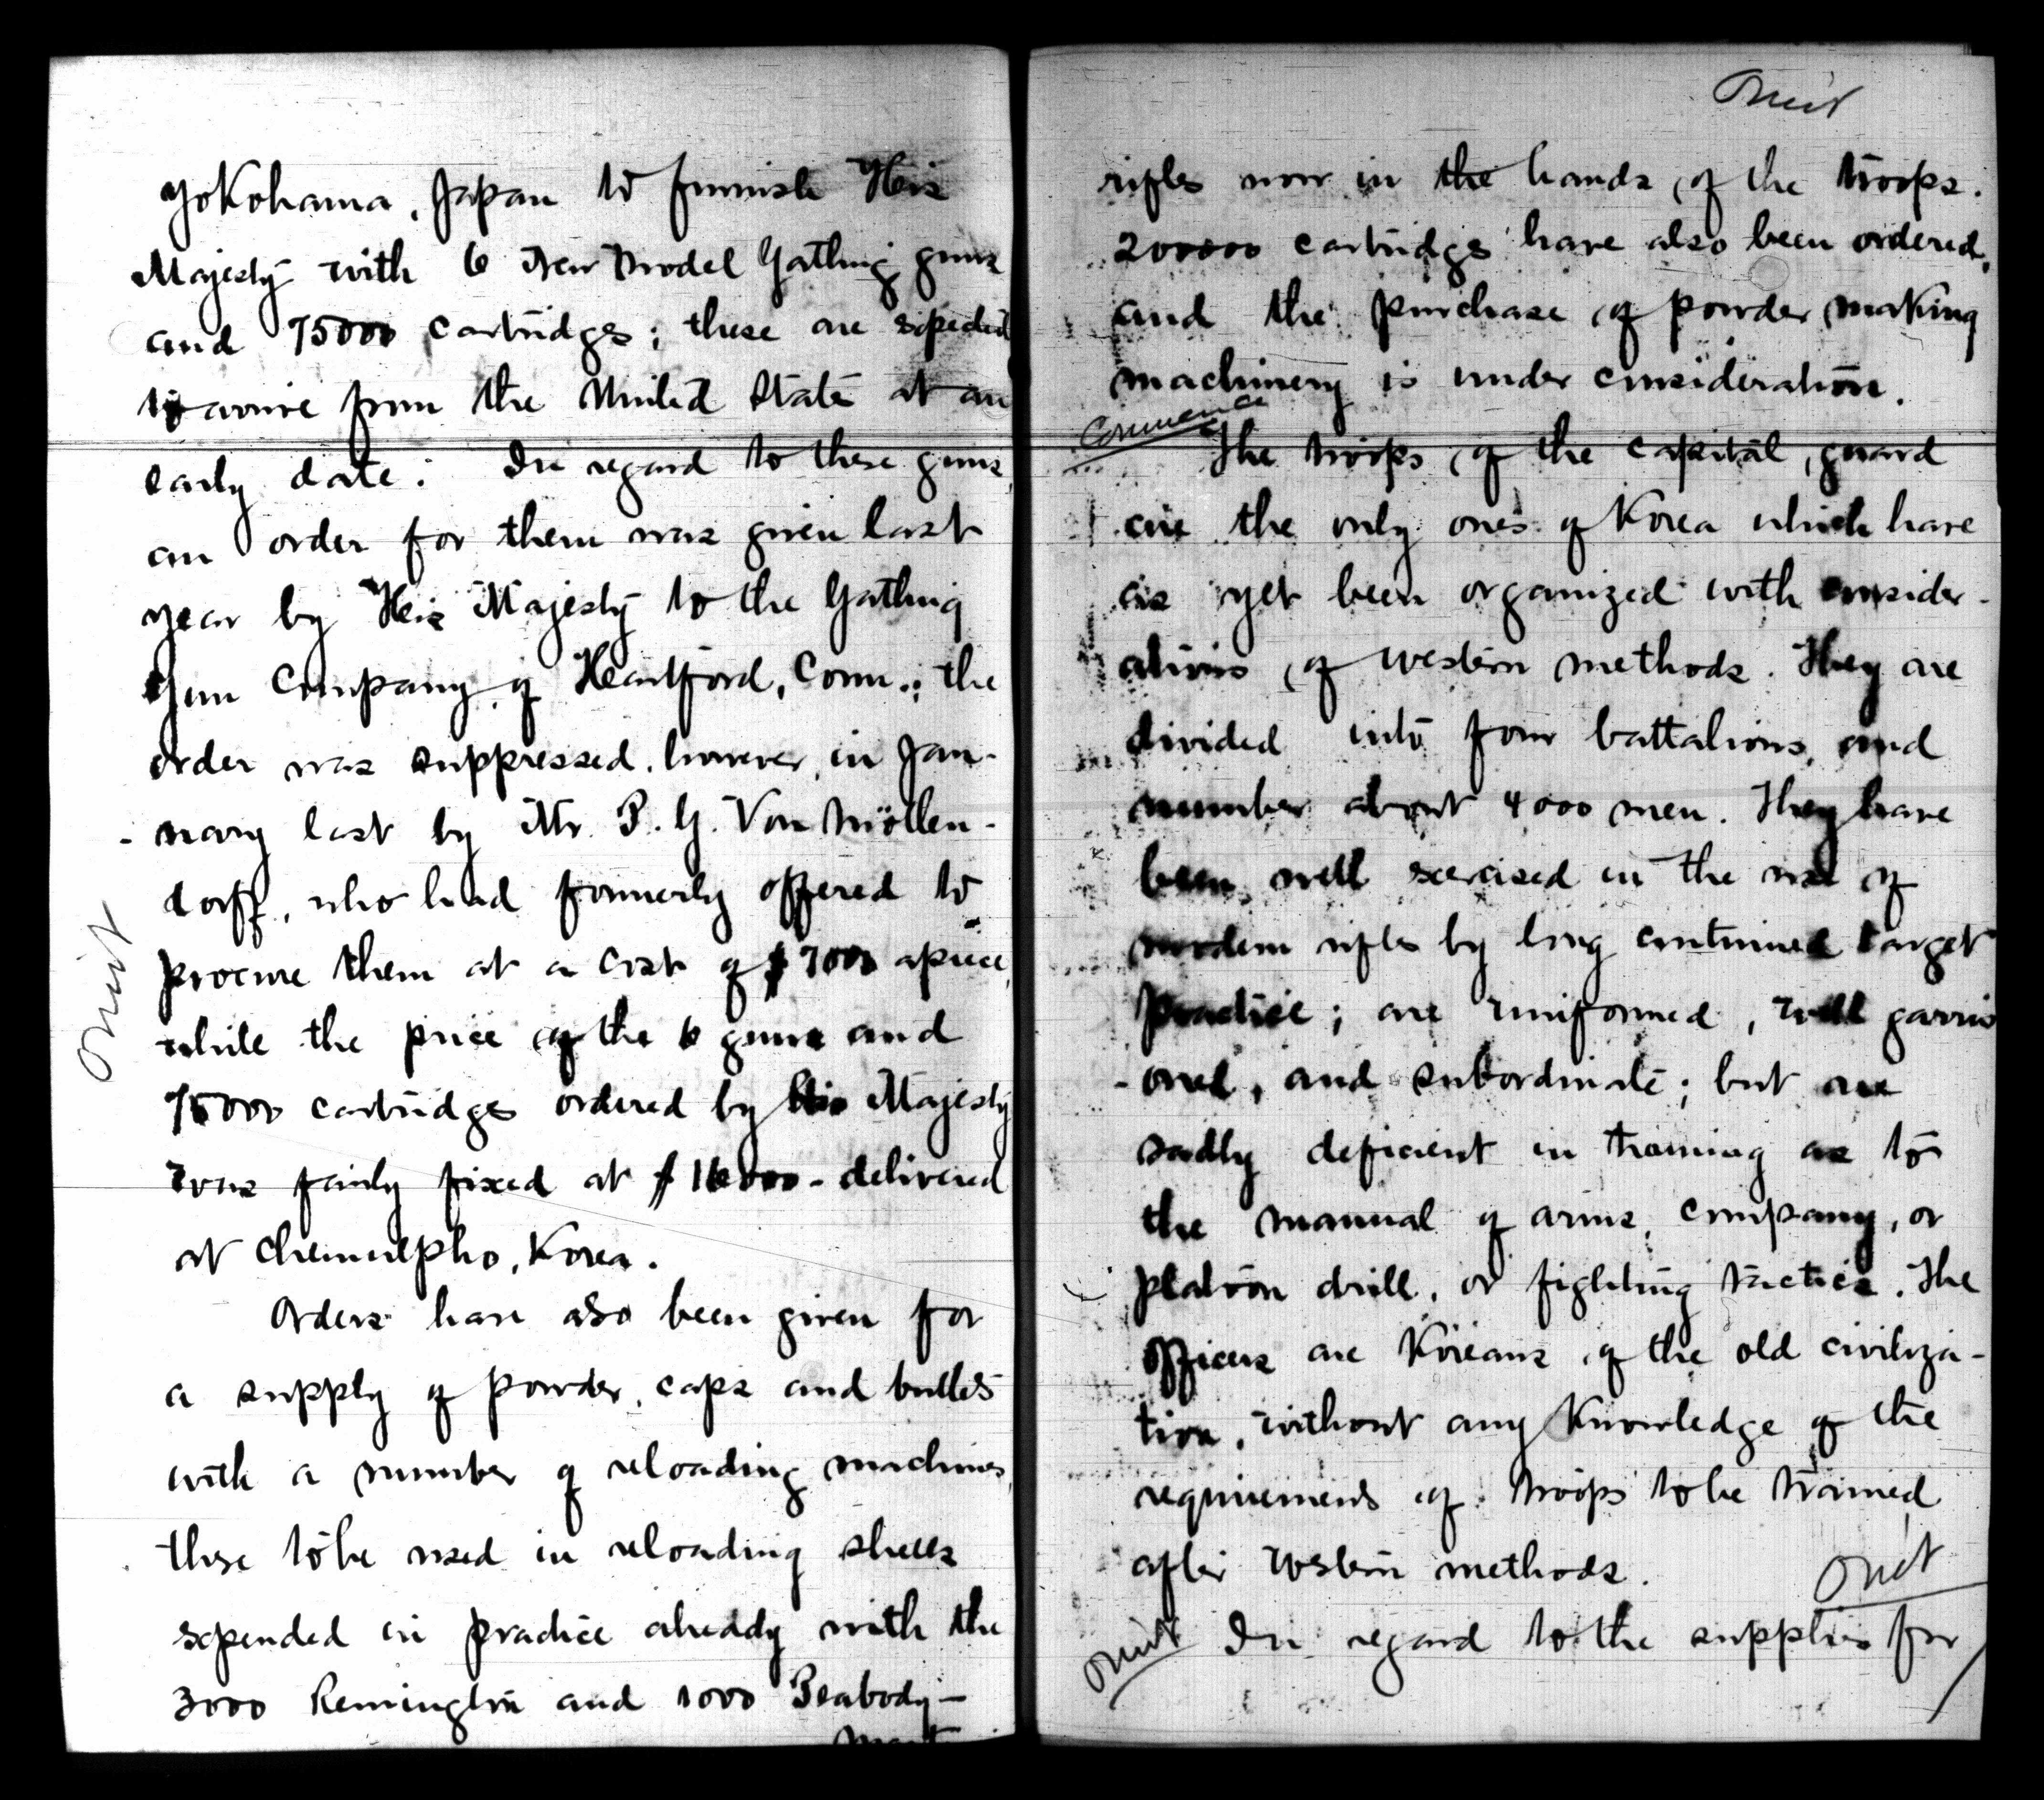 Yokohama, Japan to furnish His
Majesty with 6 New Model Gatling guns
and 75000 cartridges; these are expected
to arrive from the United States at an
early date. In regard to these guns,
an order for them was given last
year by His Majesty to the Gatling
Gun Company of Heartford, Conn.; the
order was suppressed, however, in Jan-
-uary last by Mr. P. G. Von Möllen-
dorff, who had formerly offered to
procure them at a cost of $7000 apiece,
while the price of the 6 guns and
75000 cartridges ordered by His Majesty
was fairly fixed at $16000 - delivered
at Chemulpho, Korea.
Orders have also been given for
a supply of powder, caps and bullets
with a number of reloading machines,
these to be used in reloading shells
expended in practice already with the
3000 Remington and 1000 Peabody-
Mart
Omit
Omit
rifles now in the hands of the troops.
200000 cartridges have also been ordered,
and the purchase of powder making
machinery is under consideration.
Commence
The troops of the capital guard
are the only ones of Korea which have
as yet been organized with consider-
ations of western methods. They are
divided into four battalions, and
number about 4000 men. They have
been well exercised in the use of
modern rifles by long continued target
practice; are uniformed, well garris
-oned, and subordinate; but are
sadly deficient in training as to
the manual of arms, company, or
platoon drill, or fighting tactics. The
officers are Koreans of the old civiliza-
tion, without any knowledge of the
requirements of troops to be trained
after western methods.
Omit
Omit In regard to the supplies for